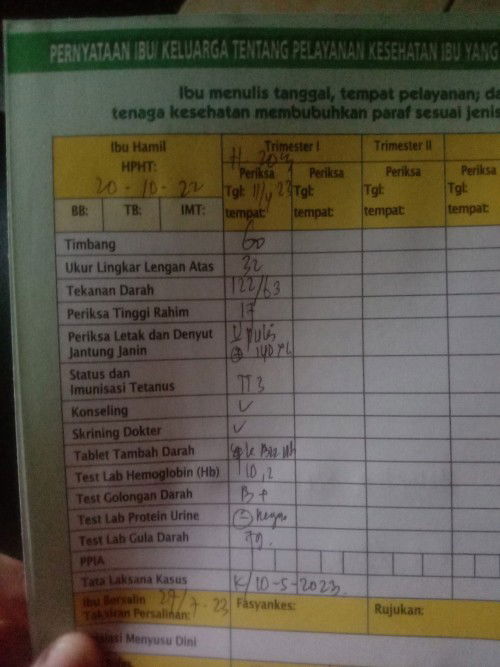 PERNYATAAN IBU/ KELUARGA TENTANG PELAYANAN KESEHATAN IBU YANG
Ibu menulis tanggal, tempat pelayanan; da
tenaga kesehatan membubuhkan paraf sesuai jenis
Ibu Hamil Trimester I Trimester II
HPHT: Periksa Periksa Periksa Periksa
20 - 10 - 22 Tgl: 11/4 23 Tgl: Tgl: Tgl:
BB: TB: IMT: tempat: tempat: tempat: tempat:
Timbang 60
Ukur Lingkar Lengan Atas 32
Tekanan Darah 122/63
Periksa Tinggi Rahim 17
Periksa Letak dan Denyut
Jantung Janin 140
Status dan
Imunisasi Tetanus TT3
Konseling ✓
Skrining Dokter ✓
Tablet Tambah Darah
Test Lab Hemoglobin (Hb) 10,2
Test Golongan Darah B+
Test Lab Protein Urine (-)
Test Lab Gula Darah
PPIA
Tata Laksana Kasus K/10-5-2023
Ibu Bersalin 27/7-23 Fasyankes: Rujukan:
Taksiran Persalinan:
Inisiasi Menyusu Dini